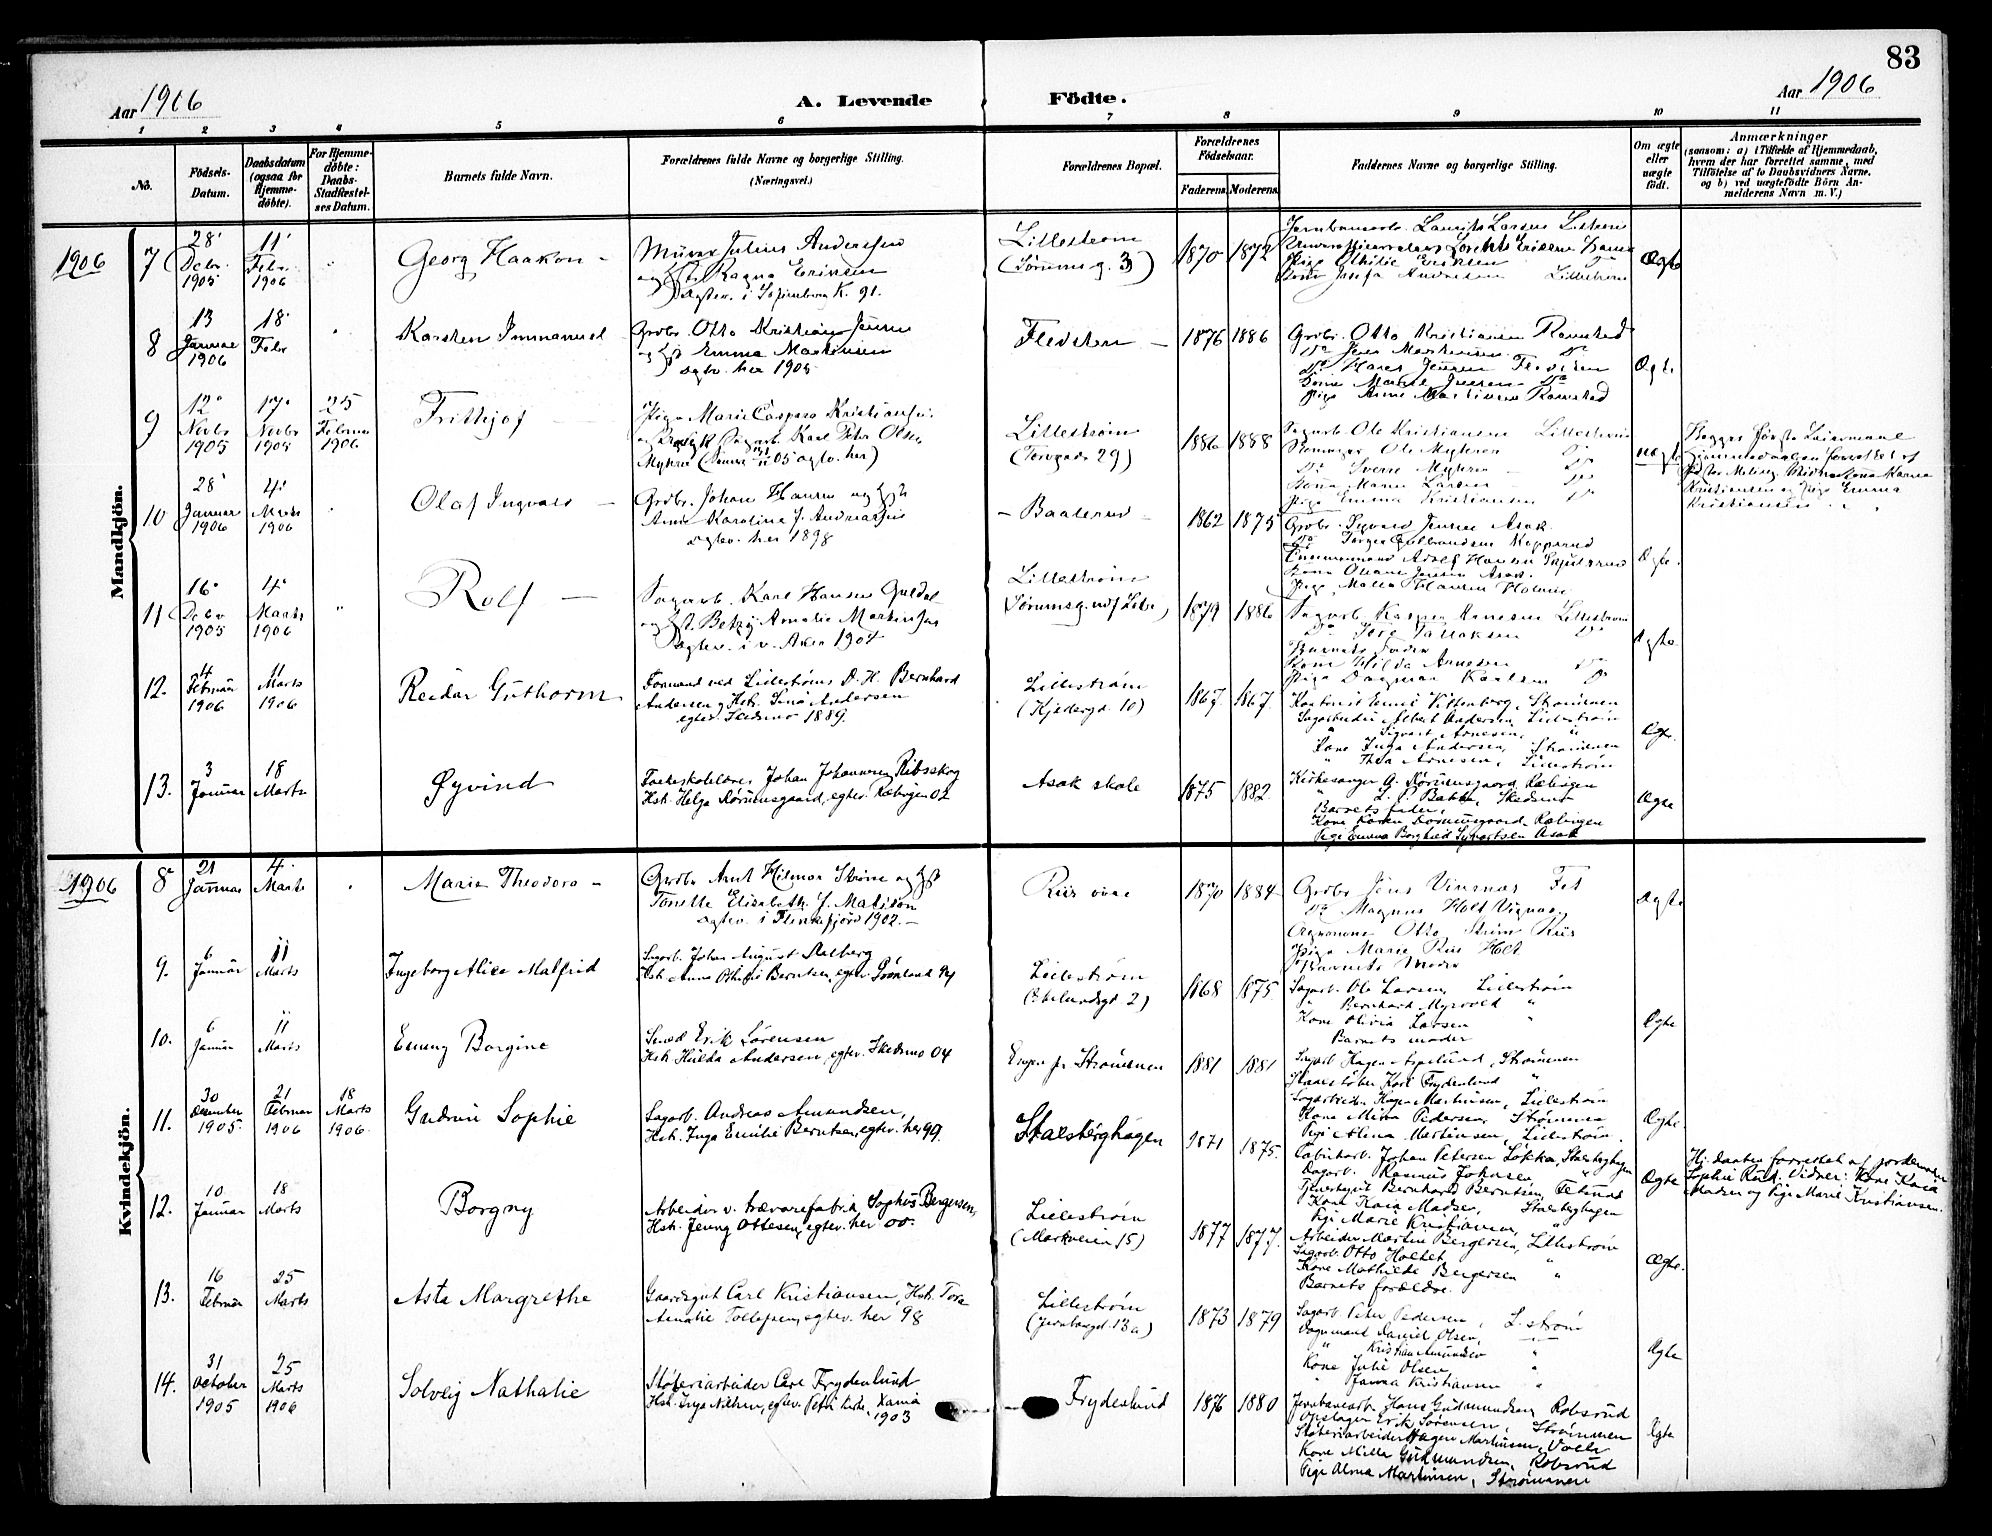 83
Aar 1906
A. Levende
Födte.
Aar 1906
1 2 3 4 5 6 7 8 9 10 11
No.
Födsels-Datum.
Daabsdatum (ogsaa for Hjemme-döbte).
For Hjemme-döbte: Daabs-Stadfæstel-ses Datum.
Barnets fulde Navn.
Forældrenes fulde Navne og borgerlige Stilling. (Næringsvei.)
Forældrenes Bopæl.
Forældrenes Födselsaar.
Faderens. Moderens.
Faddernes Navne og borgerlige Stilling.
Om ægte eller uægte födt.
Anmærkninger
(saasom: a) i Tilfælde af Hjemmedaab,
hvem der har forrettet samme, med
Tilföielse af to Daabsvidners Navne,
og b) ved uægtefödte Börn An-
melderens Navn m. V.)
Mandkjön.
1906
7
28 Debr. 1905
11 Febr. 1906
Georg Haakon
Murer Julius Anderssen
og Hst. Ragna Eriksen
Lilleström
(Sörumsg. 3)
1870 1872
Ægte
8
13 Januar 1906
18 Febr
Karsten Immanuel
Grdbr. Otto Kristian Jensen
og Hst. Emma Martinsen
ægtev. her 1905
Fledsten
1876 1886
Grdbr. Otto Kristiansen Ramstad
Do Jens Martinsen Do
Do Hans Jensen Fledsten
Kone Marie Jensen Do
Pige Anne Martinsen Ramstad
Ægte
9
12 Novbr 1905
17 Novbr 1905
25 Februar 1906
Frithjof
Pige Marie Caspara Kristiansen
Sagarb. Karl Peter Olsen
Lilleström
(Torvgade 29)
1886 1888
Sagarb. Ole Kristiansen Lilleström
Ole Myhren Do
Do Sverre Myhren Do
Kone Maren Larsen Do
Pige Emma Kristiansen Do
uægte
Begges förste Leiermaal
Hjemmedaaben forrettet af
Kristiansen og Pige Emma
Kristiansen
10
28 Januar 1906
4 Marts 1906
Olaf Ingvald
Grdbr. Johan Hansen og Hst.
Anne Karoline f. Andreassen
ægtev. her 1898
Baalerud
1862 1875
Grdbr. Sigvard Jensen Asak
Do Jörgen Gulbrandsen Kopperud
Adolf Hansen
Kone Oliane Jensen Asak
Pige Malla Hansen
Ægte.
11
16 Debr 1905
4 Marts 1906
Rolf
Sagarb. Karl Hansen Guldal
og Hst. Betzy Amalie Martinsen
ægtev. i v. Aker 1904
Lilleström
1879 1886
Sagarb Kasper Arnesen Lilleström
Do Tore Tallaksen Do
Barnets Fader
Kone Hilda Arnesen Do
Pige Dagmar Karlsen Do
Ægte
12.
4 Februar 1906
11 Marts 1906
Reidar Guthorm
Formand ved Lilleströms D. H. Bernhard
Andersen og Hst. Lina Andersen
egtev. Skedsmo 1889.
Lilleström
(Kjedergd. 10)
1867. 1867.
Kontorist Emil Vittenberg, Strömmen
Sagarbeider Albert Andersen, Lilleström
" Sigvart Arnesen, "
Kone Inga Andersen, Strömmen
" Thea Arnesen, Lilleström
Ægte.
13.
3 Januar
18 Marts
Øyvind
Folkeskolelærer Johan Johannesen Ribsskog
Hst. Helga Rörumsgaard, egtev. Rælingen 02
Asak skole
1875 1882
Kirkesanger G. Rörumsgaard, Rælingen
" L. P. Bakke, Skedsmo
Barnets fader
Kone Karen Rörumsgaard, Rælingen
Pige Emma Borghild Syvertsen Asak
Ægte
Kvindekjön.
1906
8
21 Januar
4 Marts
Marie Theodora
Grdbr Arnt Hilmar Ström og Hst
Tonette Elisabeth f. Matisen
1902.
Riis övre
1870 1884
Grdbr Jens Vinsnæs Fet
Do Magnus Holt
Otto Ström Riis
Pige Marie Riis Holt
Barnets Moder
Ægte
9.
6 Januar
11 Marts
Ingeborg Alice Malfrid
Sagarb. Johan August Aalberg
Hst. Anna Othilie Berntsen, egtev. Sörmland 94
Lilleström
1868 1875
Sagarb. Ole Larsen, Lilleström
" Bernhard Myrvold "
Kone Olivia Larsen "
Barnets moder
Ægte
10.
6 Januar
11 Marts
Emmy Borgine
Smed Erik Sörensen
Hst. Hilda Andersen, egtev. Skedsmo 04
Engen pr Strömmen
1881 1881
Sagarb Hagen Aspelund, Strömmen
Karl Frydenlund "
Sagarbeider Hagen Martinsen, Lilleström
Kone Minna Pedersen, Strömmen
Pige Alma Martinsen, Lilleström.
Ægte.
11.
30 December 1905
21 Februar 1906
18 Marts 1906.
Gudrun Sophie
Sagarb. Andreas Amundsen,
Hst. Inga Emilie Berntsen, egtev. her 99.
Stalsberghagen
1871 1875.
Fabrikarb. Johan Petersen Lökka, Stalsberghagen
Dagarb. Rasmus Johnsen, "
Bernhard Berntsen, Fetsund
Kone Kaia Madsen, Stalsberghagen
Pige Marie Kristiansen, "
Ægte
Hj. daaben forrettet af jordemoder
Sophie Ruud. Vidner: Kone Kaia
Madsen og Pige Marie Kristiansen.
12.
10 Januar
18 Marts
Borgny
Arbeider v. trævarefabrik Sophus Bergersen,
Hst. Jenny Ottesen, egtev. her 00.
Lilleström
(Markveien 15)
1877 1877.
Arbeider Martin Bergersen, Lilleström
Sagarb. Otto Holtet, "
Kone Mathilde Bergersen "
Barnets forældre.
Ægte.
13.
16 Februar
25 Marts
Asta Margrethe
Gaardsgut Carl Kristiansen, Hst. Tora
Amalie Tollefsen, egtev. her 98
Lilleström
(Jernbangd. 13a)
1873 1879
Sagarb. Peter Pedersen, L.ström
Vognmand Daniel Olsen, "
" Kristian Amundsen "
Kone Julie Olsen, "
" Janna Kristiansen "
Ægte
14.
31 October 1905
25 Marts 1906
Solveig Nathalie
Støberiarbeider Carl Frydenlund
Hst. Inga Nilsen, egtev. Petri kirke, Xania 1903
Frydenlund
1876 1880
Jernbanearb. Hans Gudmundsen, Robsrud
Opslager Erik Sörensen, Strömmen
Støberiarbeider Hagen Martinsen, Volla
Kone Milla Gudmundsen, Robsrud
Pige Alma Martinsen, Strömmen
Ægte